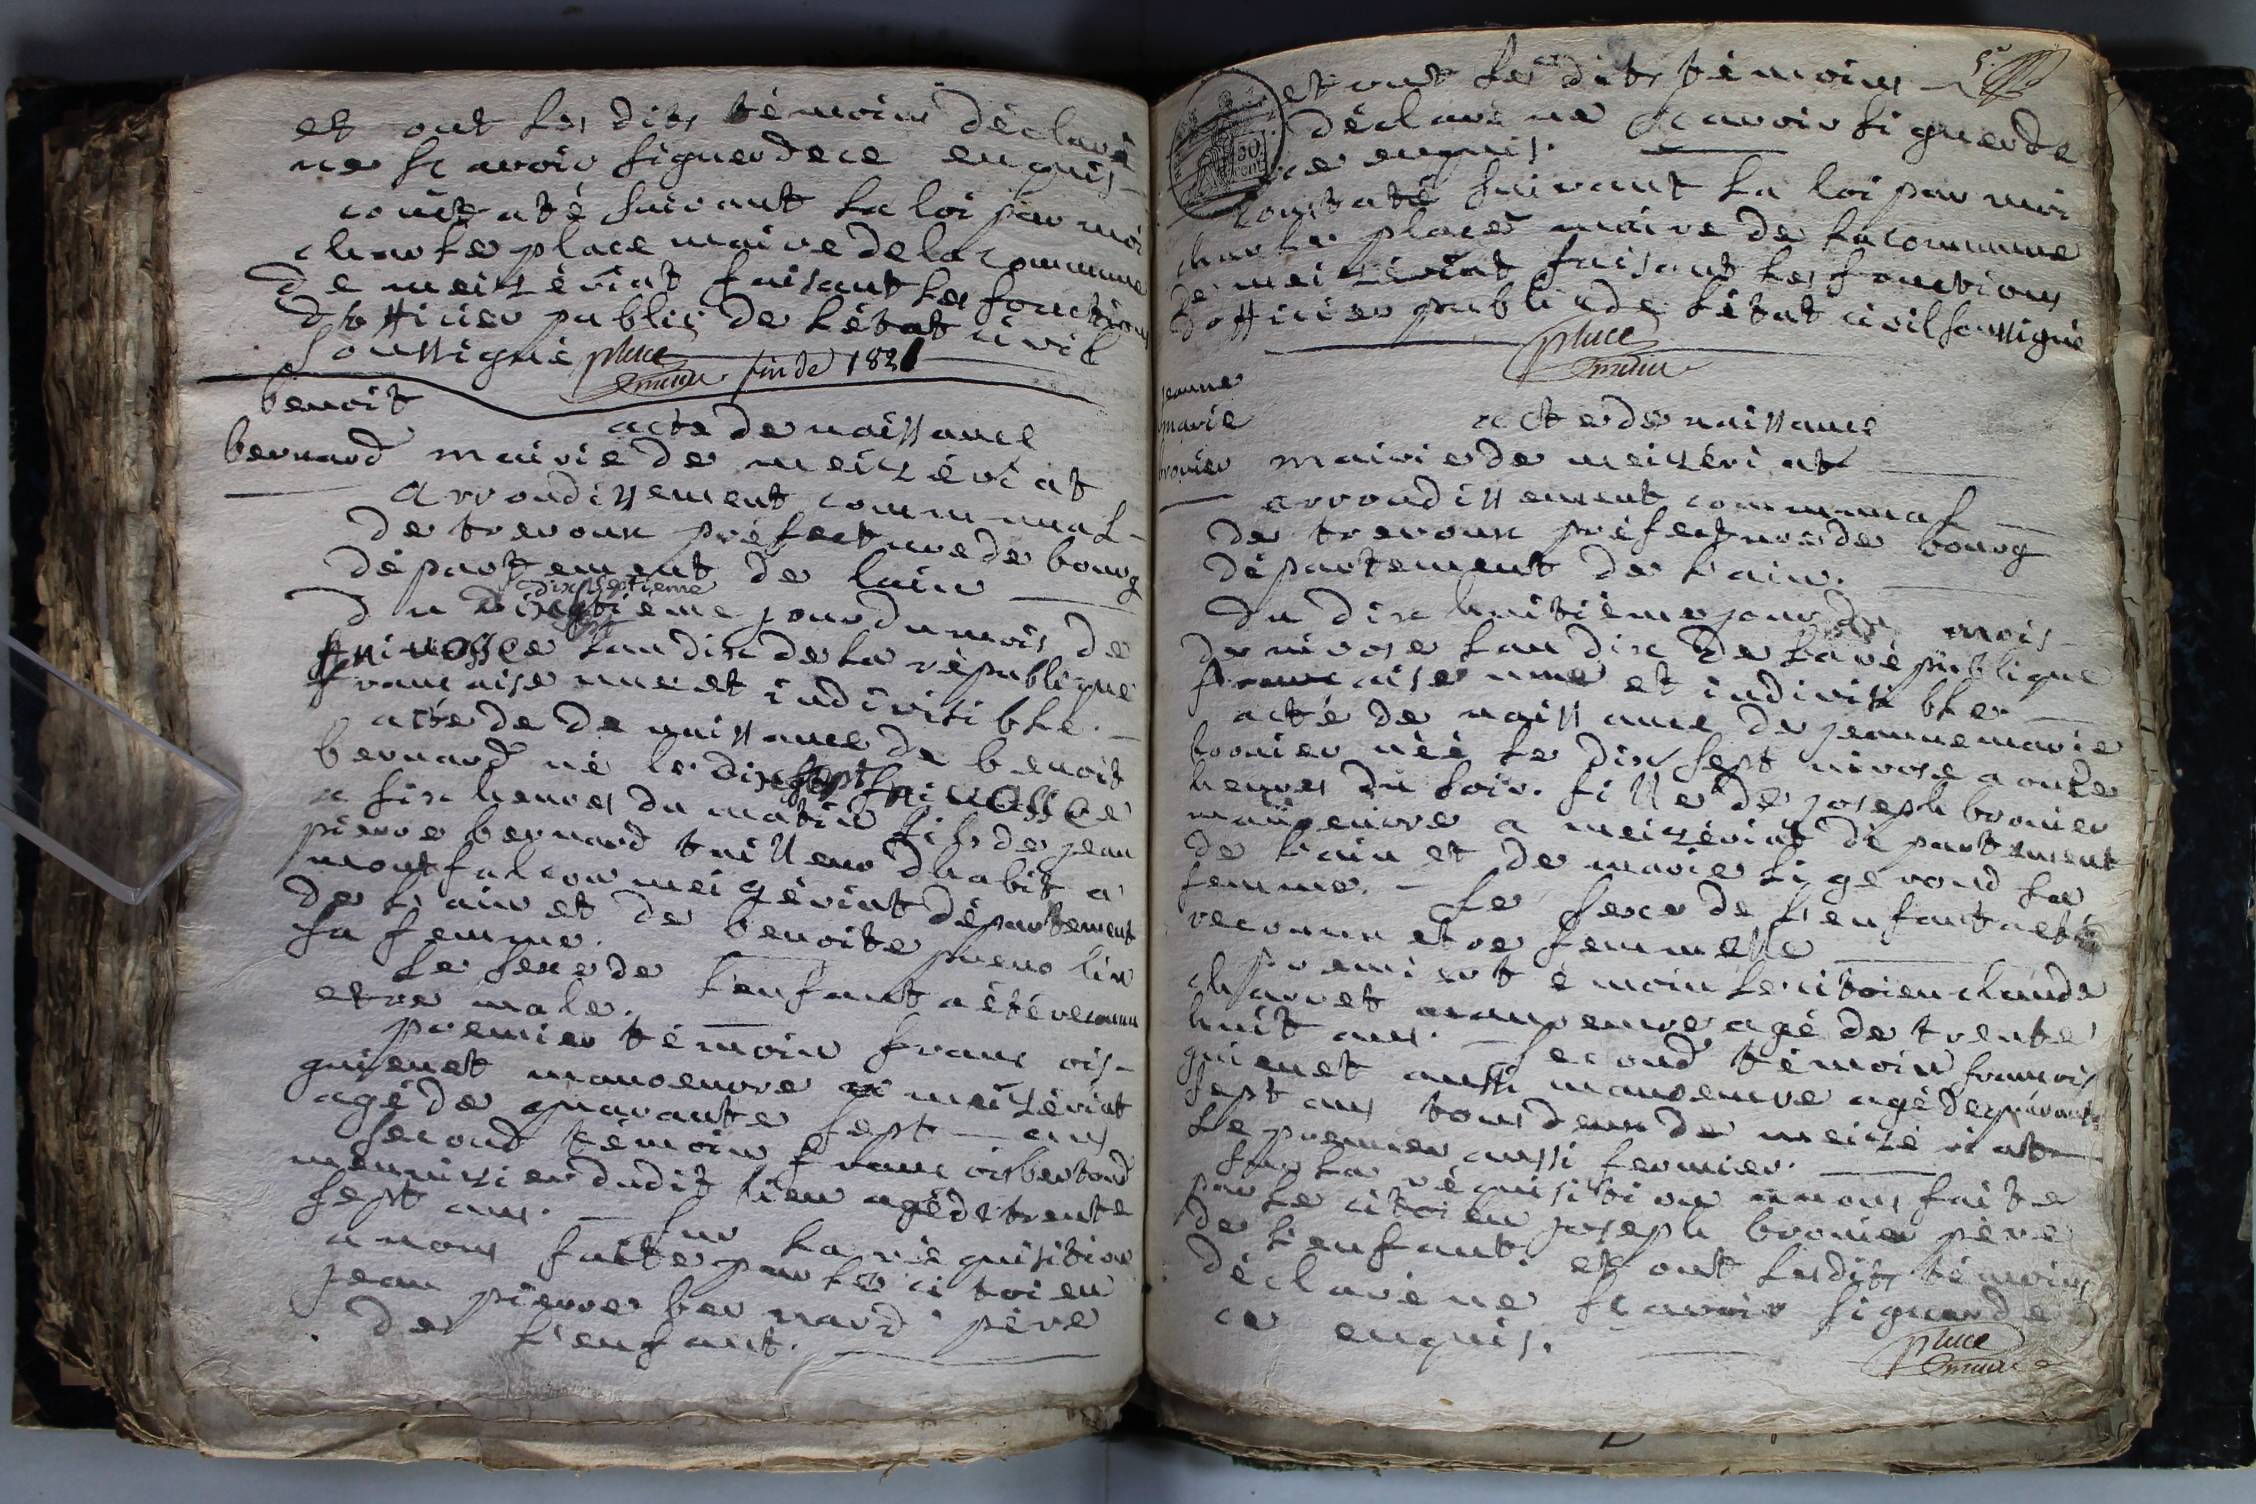 et ont les dits témoins déclaré
ne scavoir signer de ce enquis
constaté suivant la loi par moi
charle place maire de la commune
de meizériat faisant les fonctions
d'officier public de létat civil
soussigné place
maire fin de 1821
benoit
bernard
acte de naissance
mairie de meizériat
arrondissement communal
de trevoux préfecture de bourg
département de lain
dixseptieme
du jour du mois de
nivosse lan dix de la république
francaise une et indivisible.
acte de de naissance de benoit
bernard né le dix sept nivosse
a six heures du matin fils de jean
pierre bernard tailleur dhabit a
montfalcon meizériat département
de lain et de benoite
sa femme.
le sexe de lenfant a été reconnu
etre male.
premier témoin francois
guienet manoeuvre a meizériat
agé de quarante sept ans
second témoin francois bertoud
menuisier dudit lieu agé de trente
sept ans. sur la réquisition
a nous faite par le citoien
jean pierre bernard père
de lenfant.
5e
et ont les dits témoins
déclaré ne scavoir signer de
ce enquis.
constaté suivant la loi par moi
charle place maire de la commune
de meizériat faisant les fonctions
d'officier public de létat civil soussigné
place
maire
jeanne
marie
bronier
acte de naissance
mairie de meizériat
arrondissement communal
de trevoux préfecture de bourg
département de lain.
du dix huitième jour du mois
de nivose lan dix de la république
francaise une et indivisible
acte de naissance de jeanne marie
bronier née le dix sept nivose a onze
heures du soir. fille de joseph bronier
manoeuvre a meizériat département
de lain et de marie ligeroud sa
femme. le sexe de lenfant a été
reconnu etre femmelle
premier témoin le citoien claude
charvet manoeuvre agé de trente
huit ans. second témoin francois
guienet aussi manoeuvre agé de quarante
sept ans tous deux de meizériat
le premier aussi fermier.
sur la réquisition a nous faite
par le citoien joseph bronier père
de lenfant. et ont lesdits témoins
déclaré ne scavoir signer de
ce enquis.
place
maire